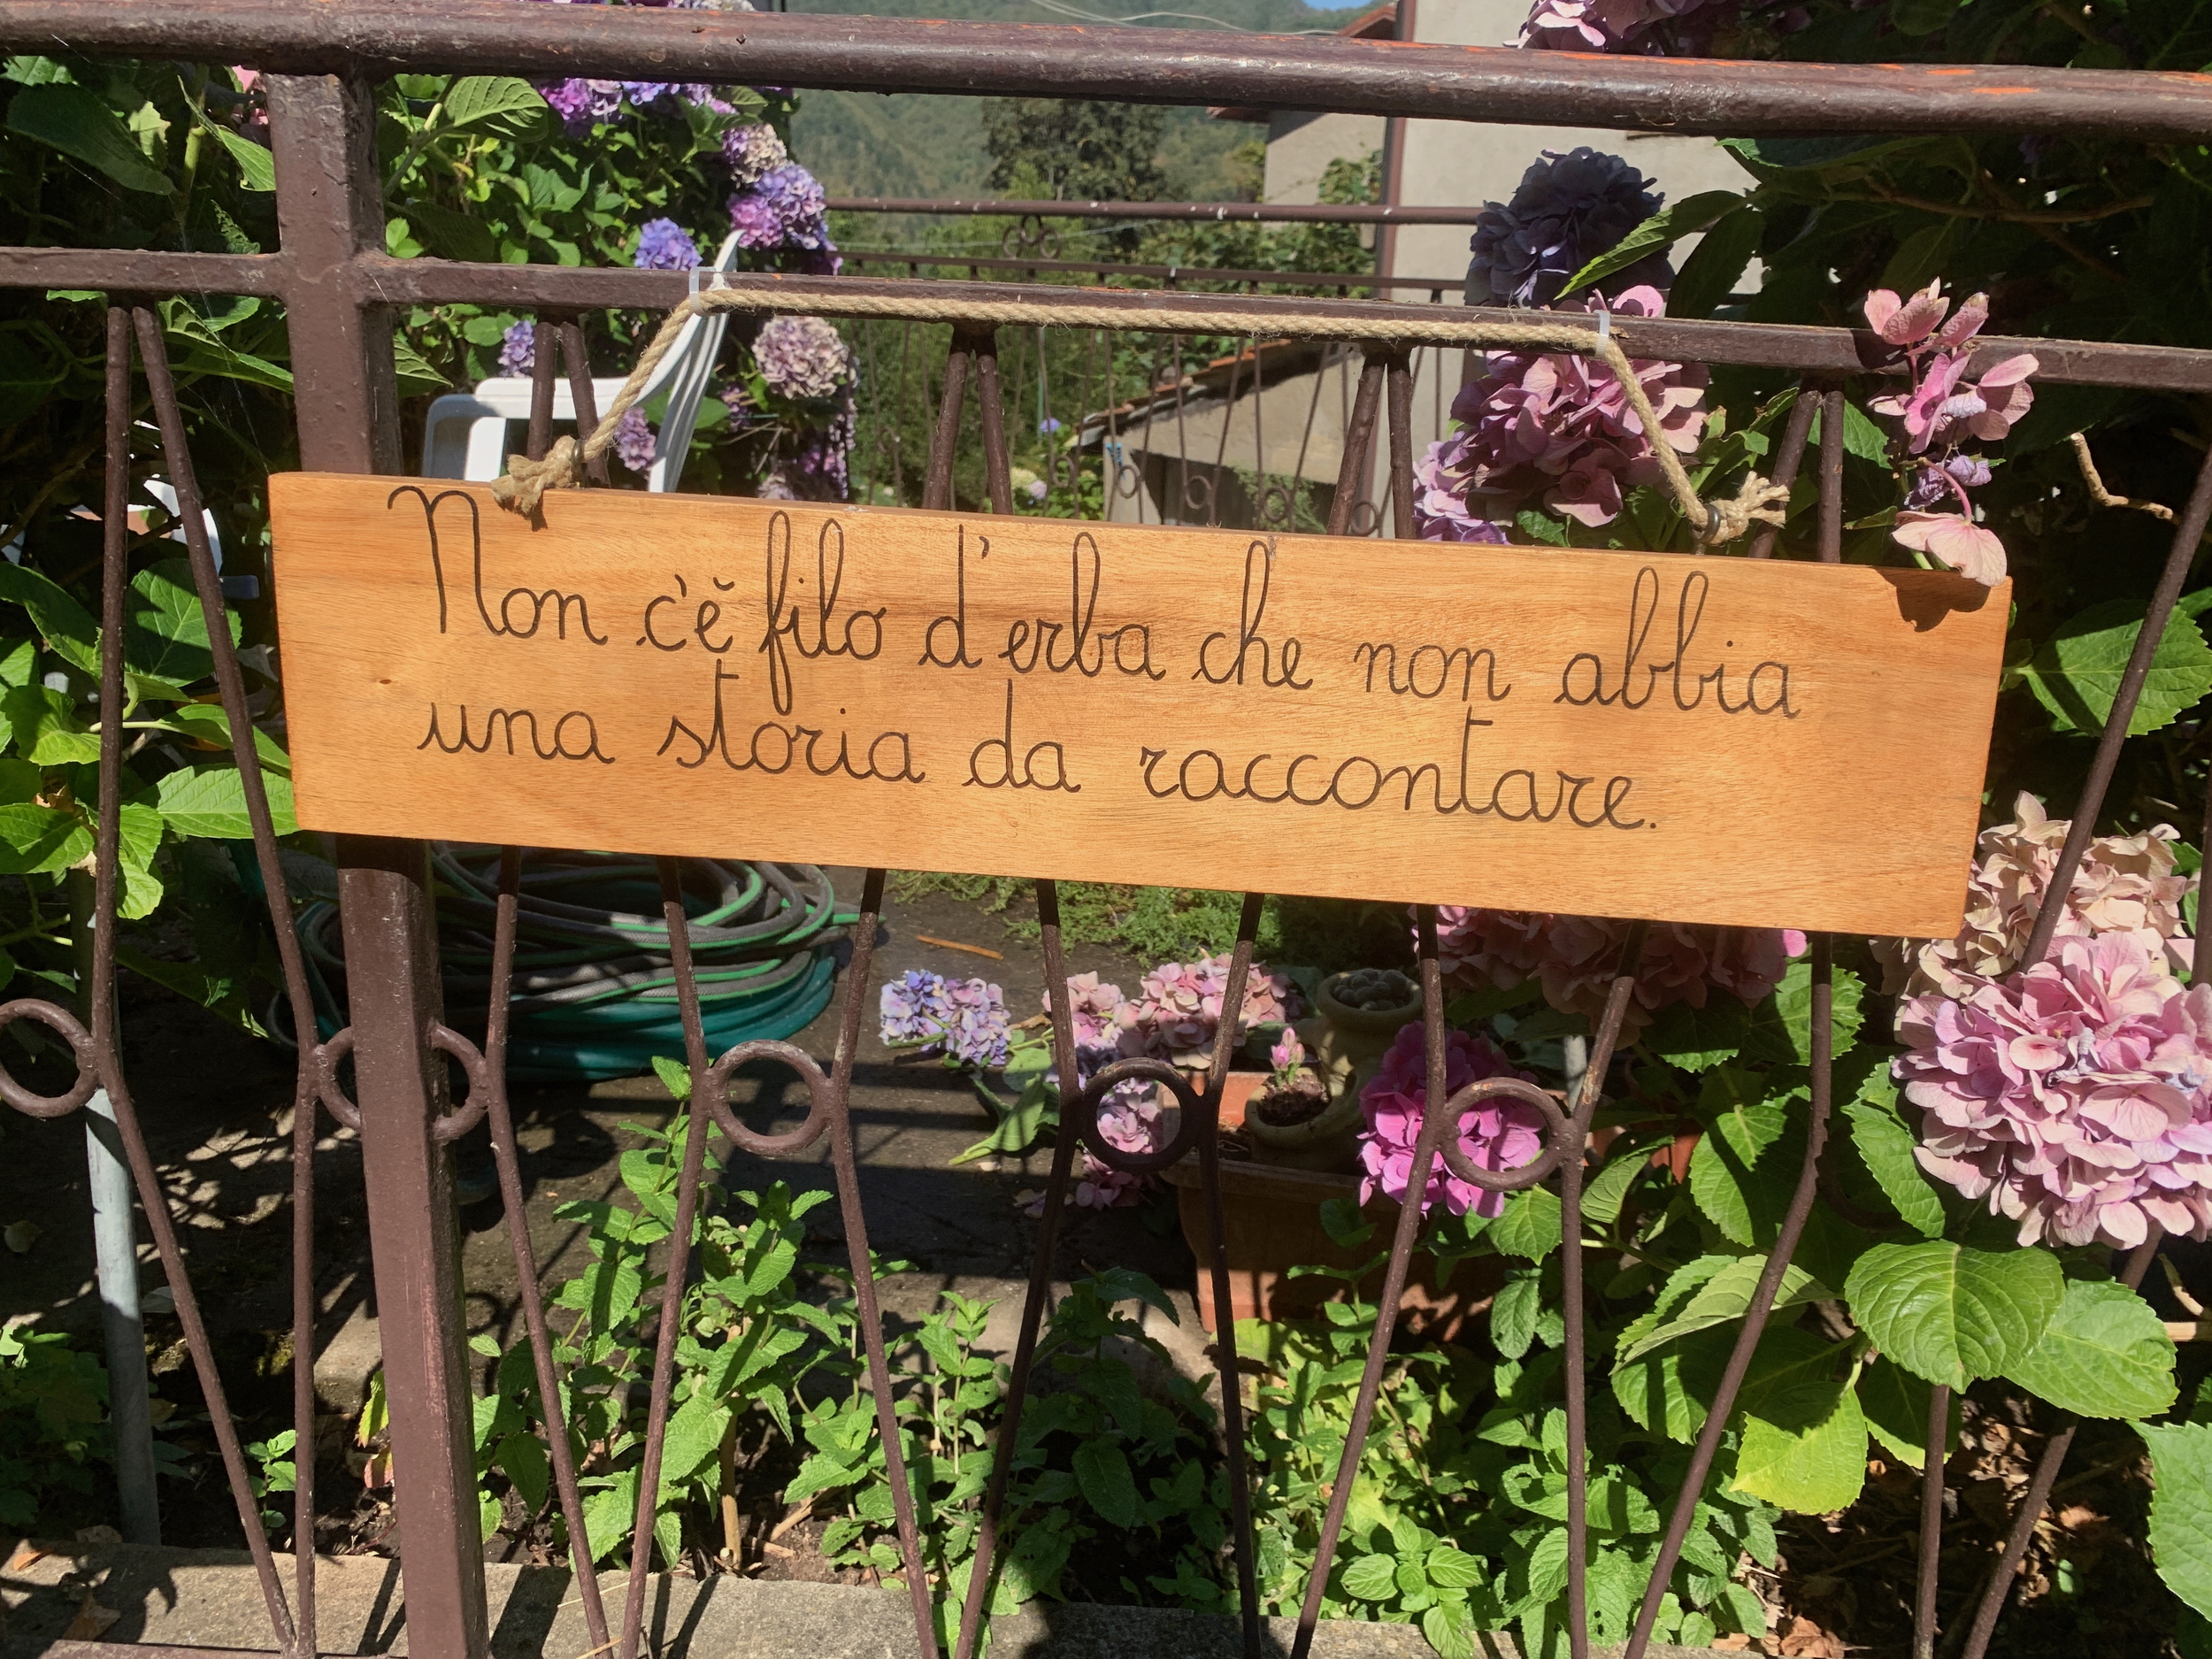 Non c'è filo d'erba che non abbia
una storia da raccontare.